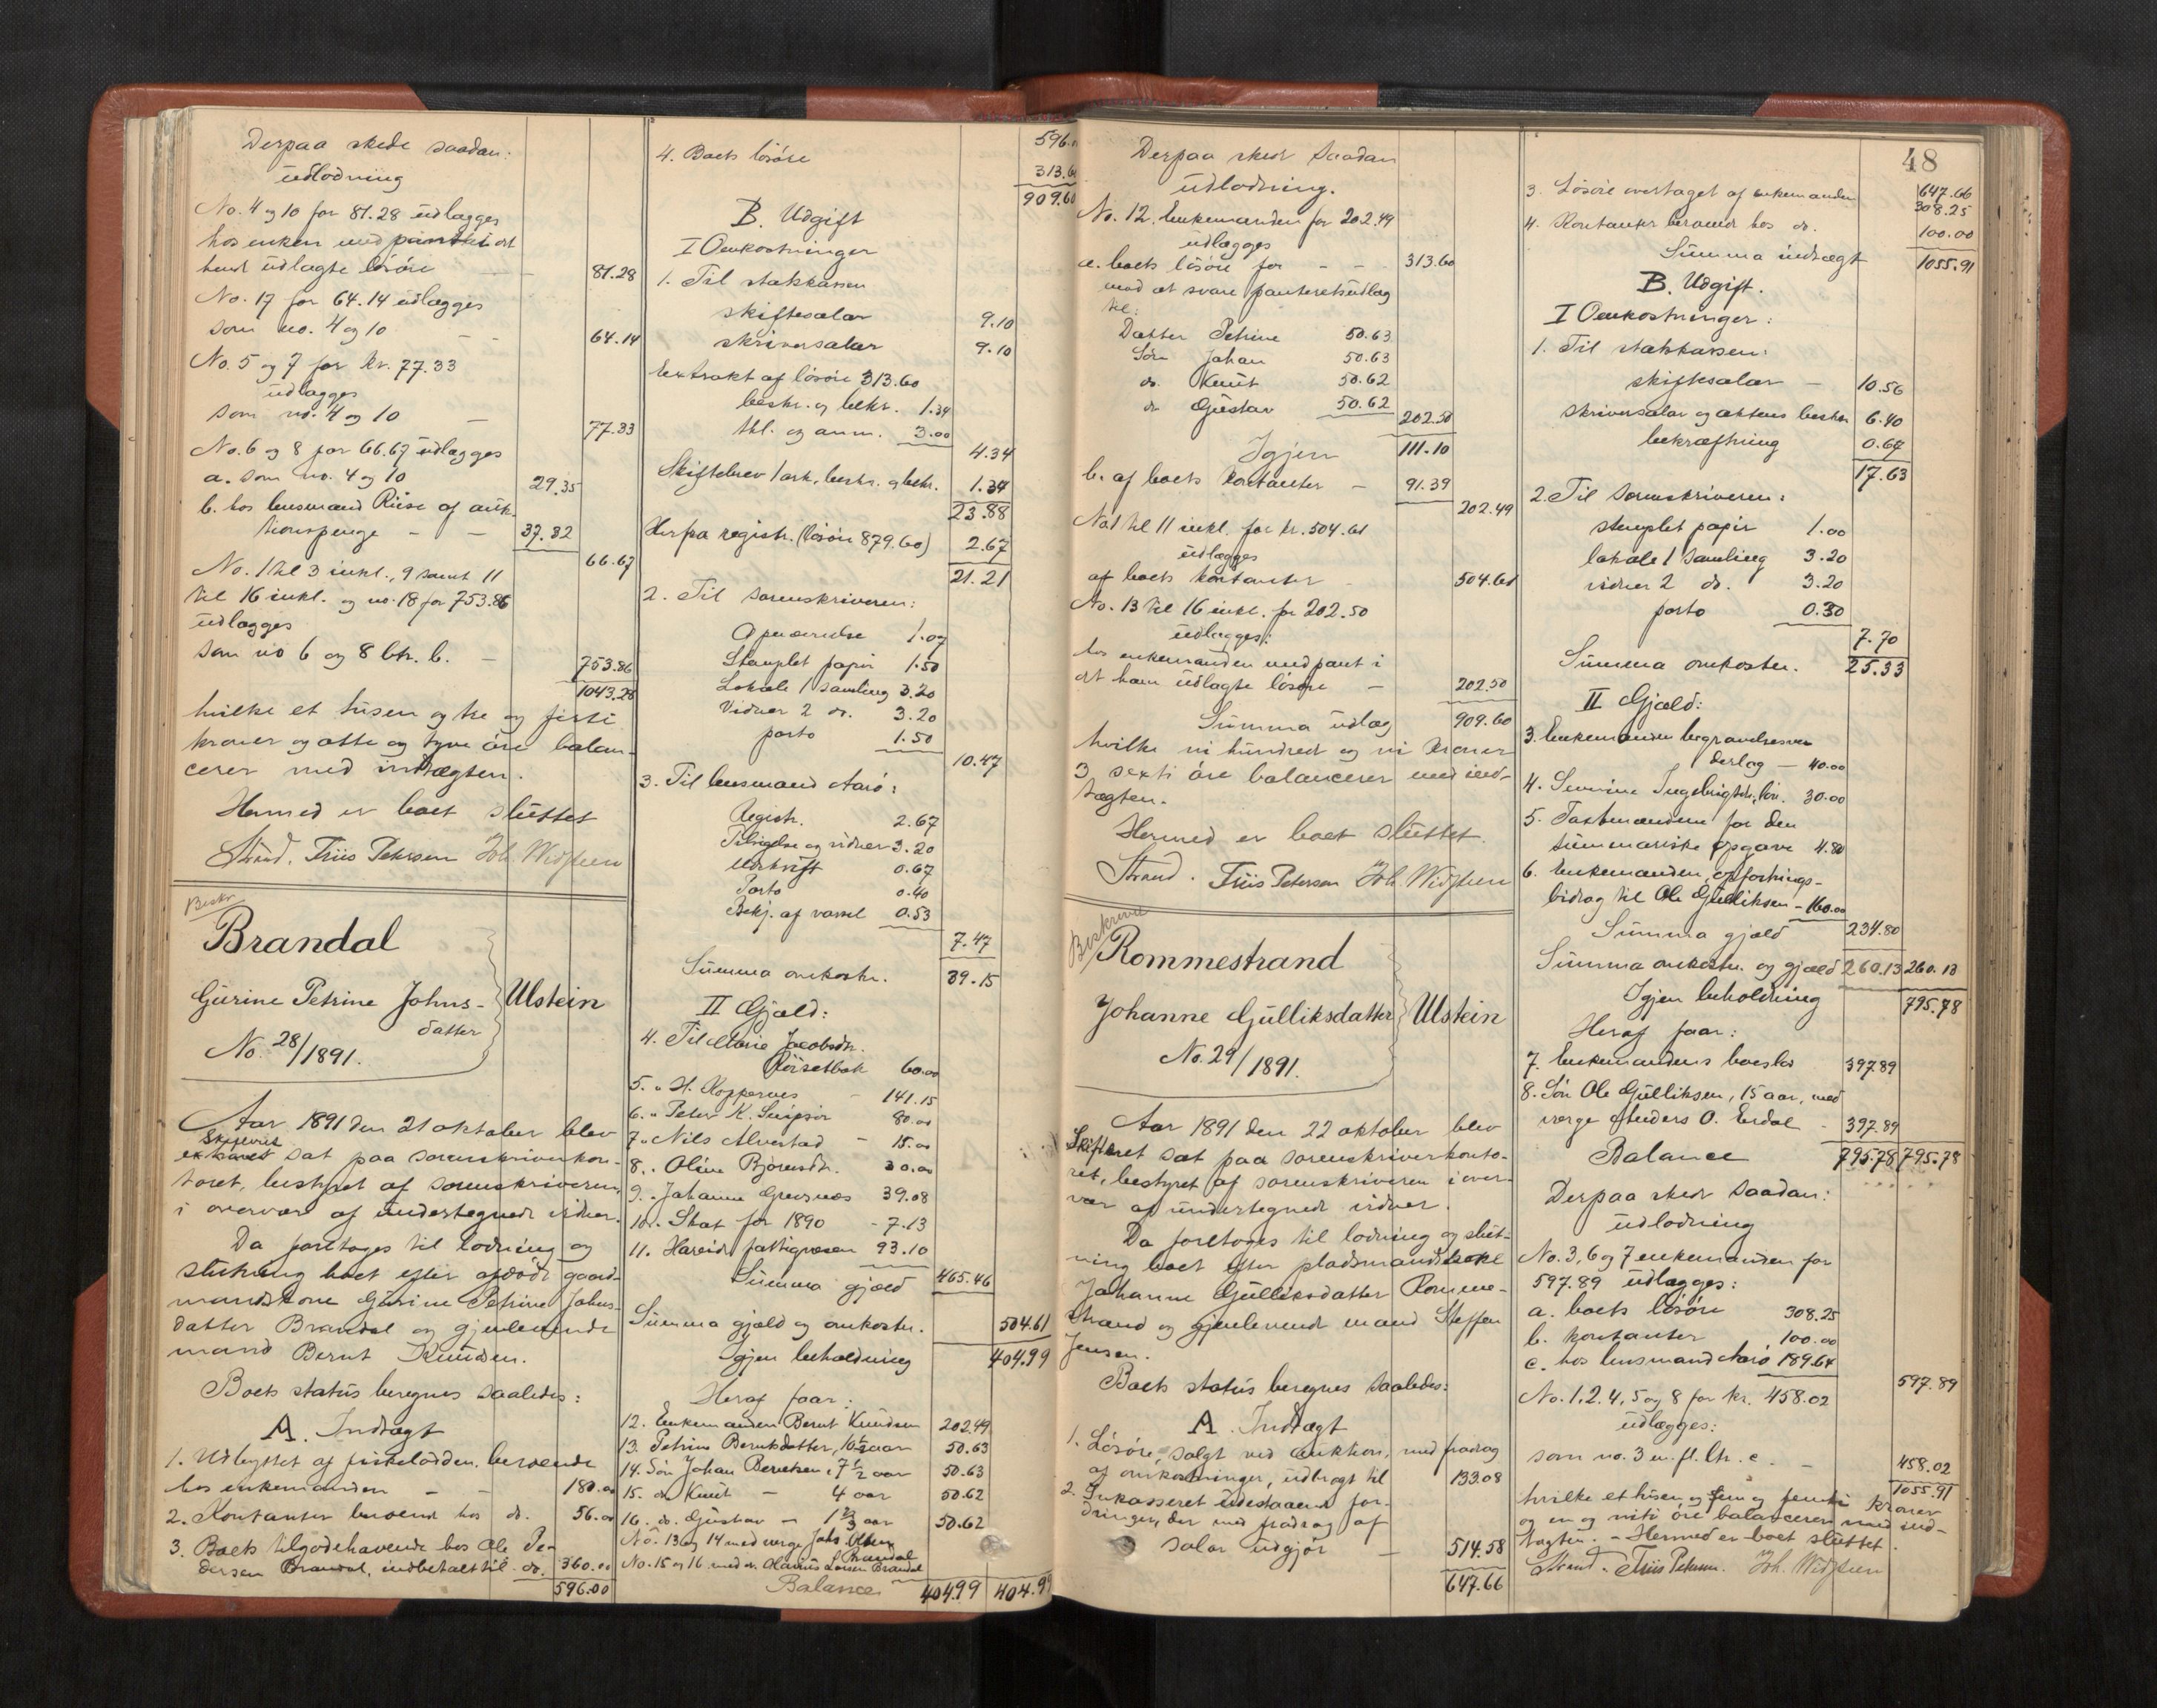 Derpaa skede saadan:
udlodning
No. 4 og 10 for 81.28 udlægges
hos enken med panteret i det
hende udlagte løsøre — 81.28
No. 17 for 64.14 udlægges
som no. 4 og 10 - - 64.14
No. 5 og 7 for kr. 77.33
udlægges
som no. 4 og 10 — 77.33
No. 6 og 8 for 66.67 udlægges
a. som no. 4 og 10 29.35
b. hos lensmand Riise af auk-
tionspenge - - 37.32
66.67
No. 1 til 3 inkl., 9 samt 11
til 16 inkl. og no. 18 for 753.86
udlægges
som no 6 og 8 ltr. b. - 753.86
1043.28
hvilke et tusen og tre og firti
kroner og otte og tyve øre balan-
cerer med indtægten.
Hermed er boet sluttet
Strand. Friis Petersen Joh. Widsteen
Beskr.
Brandal
Gurine Petrine Johns-
datter
Ulstein
No. 28/1891.
Aar 1891 den 21 oktober blev
skifteret sat paa sorenskriverkon-
toret, bestyret af sorenskriveren
i overvær af undertegnede vidner.
Da foretoges til lodning og
slutning boet efter afdøde gaard-
mandskone Gurine Petrine Johns-
datter Brandal og gjenlevende
mand Bernt Knudsen.
Boets status beregnes saaledes:
A. Indtægt
1. Udbyttet af fiskelodden, beroende
hos enkemanden - - 180.00
2. Kontanter beroende hos do. 56.00
3. Boets tilgodehavende hos Ole Pe-
dersen Brandal, indbetalt til do. 360.00
596.00
596.
4. Boets løsøre 313.60
909.60
B. Udgift
I Omkostninger
1. Til statskassen
skiftesalær 9.10
skriversalær 9.10
Extrakt af løsøre 313.60
beskr. og bekr. 1.34
thl. og anm. 3.00
4.34
Skiftebrev 1 ark, beskr. og bekr. 1.34
23.88
Herfra registr. (løsøre 879.60) 2.67
21.21
2. Til sorenskriveren:
Stemplet papir 1.50
Lokale 1 samling 3.20
Vidner 2 do. 3.20
porto 1.50
10.47
3. Til lensmand Aarø:
Registr. 2.67
Tilsigelse og vidner 3.20
Udskrift 0.67
Porto 0.40
Bekj. af varsel 0.53
7.47
Summa omkostn. 39.15
II Gjæld:
4. Til Marie Jacobsdtr.
Røisetbak 60.00
5. " H. Koppernæs - 141.15
6. " Peter K. 80.00
7. " Nils Alvestad - 15.00
8. " Oline Bjørnsdtr. 30.00
9. " Johanne Grevsnæs 39.08
10. Skat for 1890 - 7.13
11. Hareids fattigvæsen 93.10
Summa gjæld 465.46
Summa gjæld og omkostn. 504.61
Igjen beholdning 404.99
Heraf faar:
12. Enkemanden Bernt Knudsen 202.49
13. Petrine Berntsdatter, 10½ aar 50.63
14. Søn Johan Berntsen, 7½ aar 50.63
15. do Knut - 4 aar 50.62
16. do. Gustav - 1⅔ aar 50.62
No. 13 og 14 med verge Johs Olsen
Brandal
No. 15 og 16 med do. Olaus Larsen Brandal
Balance 404.99 404.99
Derpaa skede saadan
udlodning.
No. 12, Enkemanden for 202.49
udlægges
a. boets løsøre for - - 313.60
mod at svare panteretsudlæg
til:
Datter Petrine 50.63
Søn Johan 50.63
do. Knut 50.62
do Gustav 50.62
202.50
Igjen 111.10
b. af boets kontanter - 91.39
202.49
No 1 til 11 inkl. for kr. 504.61
udlægges
af boets kontanter - 504.61
No. 13 til 16 inkl. for 202.50
udlægges:
hos enkemanden med pant i
det ham udlagte løsøre - 202.50
Summa udlæg 909.60
hvilke ni hundred og ni kroner
og sexti øre balancerer med ind-
tægten.
Hermed er boet sluttet.
Strand. Friis Petersen Joh. Widsteen
Beskrevet
Rommestrand
Johanne Gulliksdatter
Ulstein
No. 29/1891.
Aar 1891 den 22 oktober blev
Skifteret sat paa sorenskriverkonto-
ret, bestyret af sorenskriveren i over-
vær af undertegnede vidner.
Da foretoges til lodning og slut-
ning boet efter pladsmandskone
Johanne Gulliksdatter Romme-
strand og gjenlevende mand Steffen
Jensen.
Boets status beregnes saaledes:
A. Indtægt
1. Løsøre, solgt ved auktion, med fradrag
af omkostninger, udbragt til 133.08
2. Inkasseret udestaaende for-
dringer, der med fradrag af
salær udgjør - 514.58
647.66
48
647.66
3. Løsøre overtaget af enkemanden 308.25
4. Kontanter beroende hos do. 100.00
Summa indtægt 1055.91
B. Udgift.
I Omkostninger:
1. Til statskassen:
skiftesalær - 10.56
skriversalær og aktens beskr. 6.40
bekræftning 0.67
17.63
2. Til sorenskriveren:
stemplet papir 1.00
lokale 1 samling 3.20
vidner 2 do. 3.20
porto 0.30
7.70
Summa omkostn. 25.33
II Gjæld:
3. Enkemanden begravelsesve-
derlag - 40.00
4. Severine Ingebrigtsdtr., løn. 30.00
5. Taxtmændene for den
summariske opgave 4.80
6. Enkemanden, opfostrings-
bidrag til Ole Gulliksen - 160.00
Summa gjæld 234.80
Summa omkostn. og gjæld 260.13 260.13
Igjen beholdning 795.78
Heraf faar:
7. Enkemandens boeslod 397.89
8. Søn Ole Gulliksen, 15 aar, med
verge Anders O. Eidal - 397.89
Balance 795.78 795.78
Derpaa skede saadan:
udlodning
No. 3, 6 og 7 enkemanden for
597.89 udlægges:
a. boets løsøre 308.25
b. kontanter 100.00
c. hos lensmand Aarø 189.64
597.89
No. 1, 2, 4, 5 og 8 for kr. 458.02
udlægges:
som no. 3 m. fl. ltr. c. - 458.02
1055.91
hvilke et tusen og fem og femti kroner
og en og niti øre balancerer med ind-
tægten. - Hermed er boet sluttet.
Strand. Friis Petersen. Joh. Widsteen